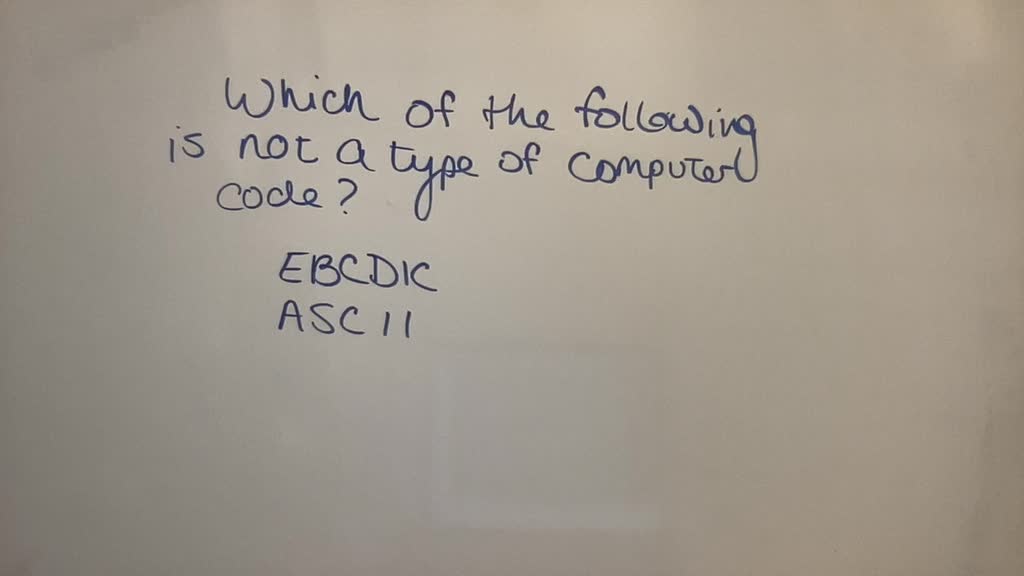 Which of the following
is not a type of computer
code?
EBCDIC
ASCII